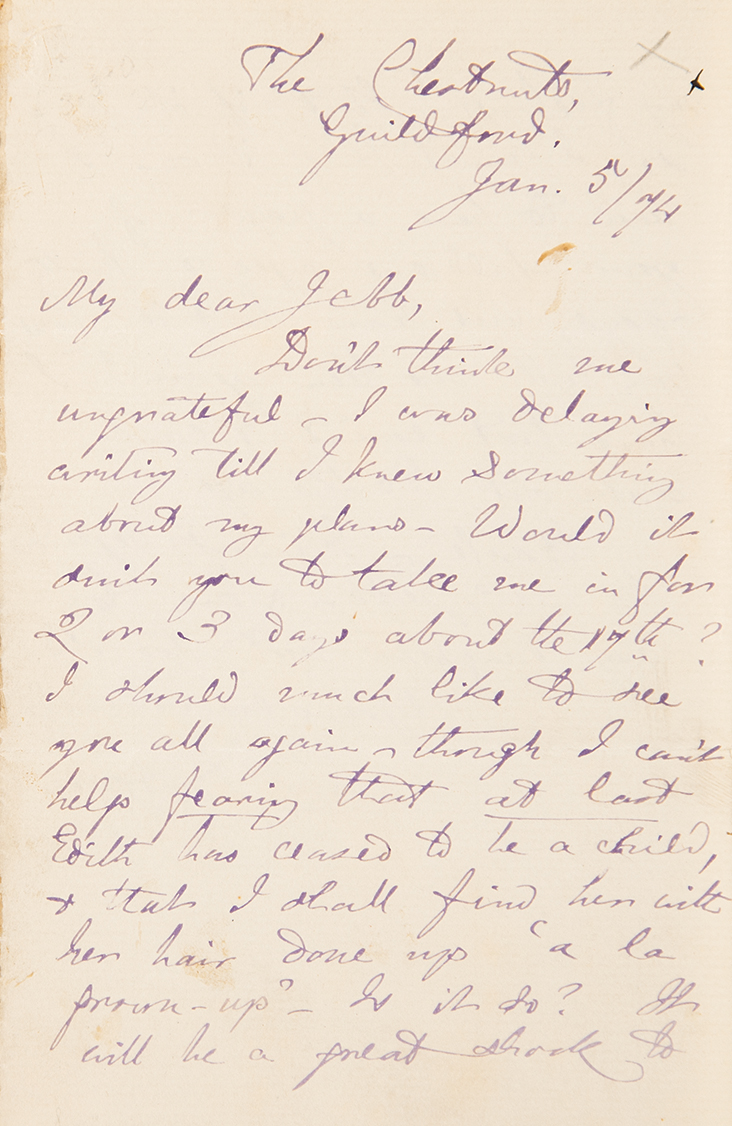 The Chestnuts,
Guildford.
Jan. 5/74
My dear Jebb,
Don't think me
ungrateful – I was delaying
writing till I knew something
about my plans – Would it
suit you to take me in for
2 or 3 days about the 17th?
I should much like to see
you all again – though I can't
help fearing that at last
Edith has ceased to be a child,
& that I shall find her with
her hair done up 'a la
grown-up' – Is it so? It
will be a great shock to